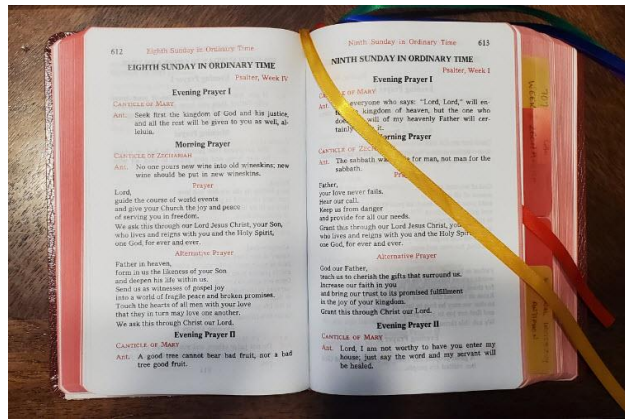 612 Eighth Sunday in Ordinary Time
EIGHTH SUNDAY IN ORDINARY TIME
Psalter, Week IV
Evening Prayer I
CANTICLE OF MARY
Ant. Seek first the kingdom of God and his justice,
and all the rest will be given to you as well, al-
leluia.
Morning Prayer
CANTICLE OF ZECHARIAH
Ant. No one pours new wine into old wineskins; new
wine should be put in new wineskins.
Prayer
Lord,
guide the course of world events
and give your Church the joy and peace
of serving you in freedom.
We ask this through our Lord Jesus Christ, your Son,
who lives and reigns with you and the Holy Spirit,
one God, for ever and ever.
Alternative Prayer
Father in heaven,
form in us the likeness of your Son
and deepen his life within us.
Send us as witnesses of gospel joy
into a world of fragile peace and broken promises.
Touch the hearts of all men with your love
that they in turn may love one another.
We ask this through Christ our Lord.
Evening Prayer II
CANTICLE OF MARY
Ant. A good tree cannot bear bad fruit, nor a bad
tree good fruit.
Ninth Sunday in Ordinary Time 613
NINTH SUNDAY IN ORDINARY TIME
Psalter, Week I
Evening Prayer I
CANTICLE OF MARY
Ant. everyone who says: "Lord, Lord," will en-
kingdom of heaven, but the one who
will of my heavenly Father will cer-
tainly it.
Morning Prayer
CANTICLE OF
Ant. The sabbath was for man, not man for the
sabbath.
Father,
your love never fails.
Hear our call.
Keep us from danger
and provide for all our needs.
Grant this through our Lord Jesus Christ,
who lives and reigns with you and the Holy
one God, for ever and ever.
Alternative Prayer
God our Father,
teach us to cherish the gifts that surround us.
Increase our faith in you
and bring our trust to its promised fulfillment
in the joy of your kingdom.
Grant this through Christ our Lord.
Evening Prayer II
CANTICLE OF MARY
Ant. Lord, I am not worthy to have you enter my
house; just say the word and my servant will
be healed.